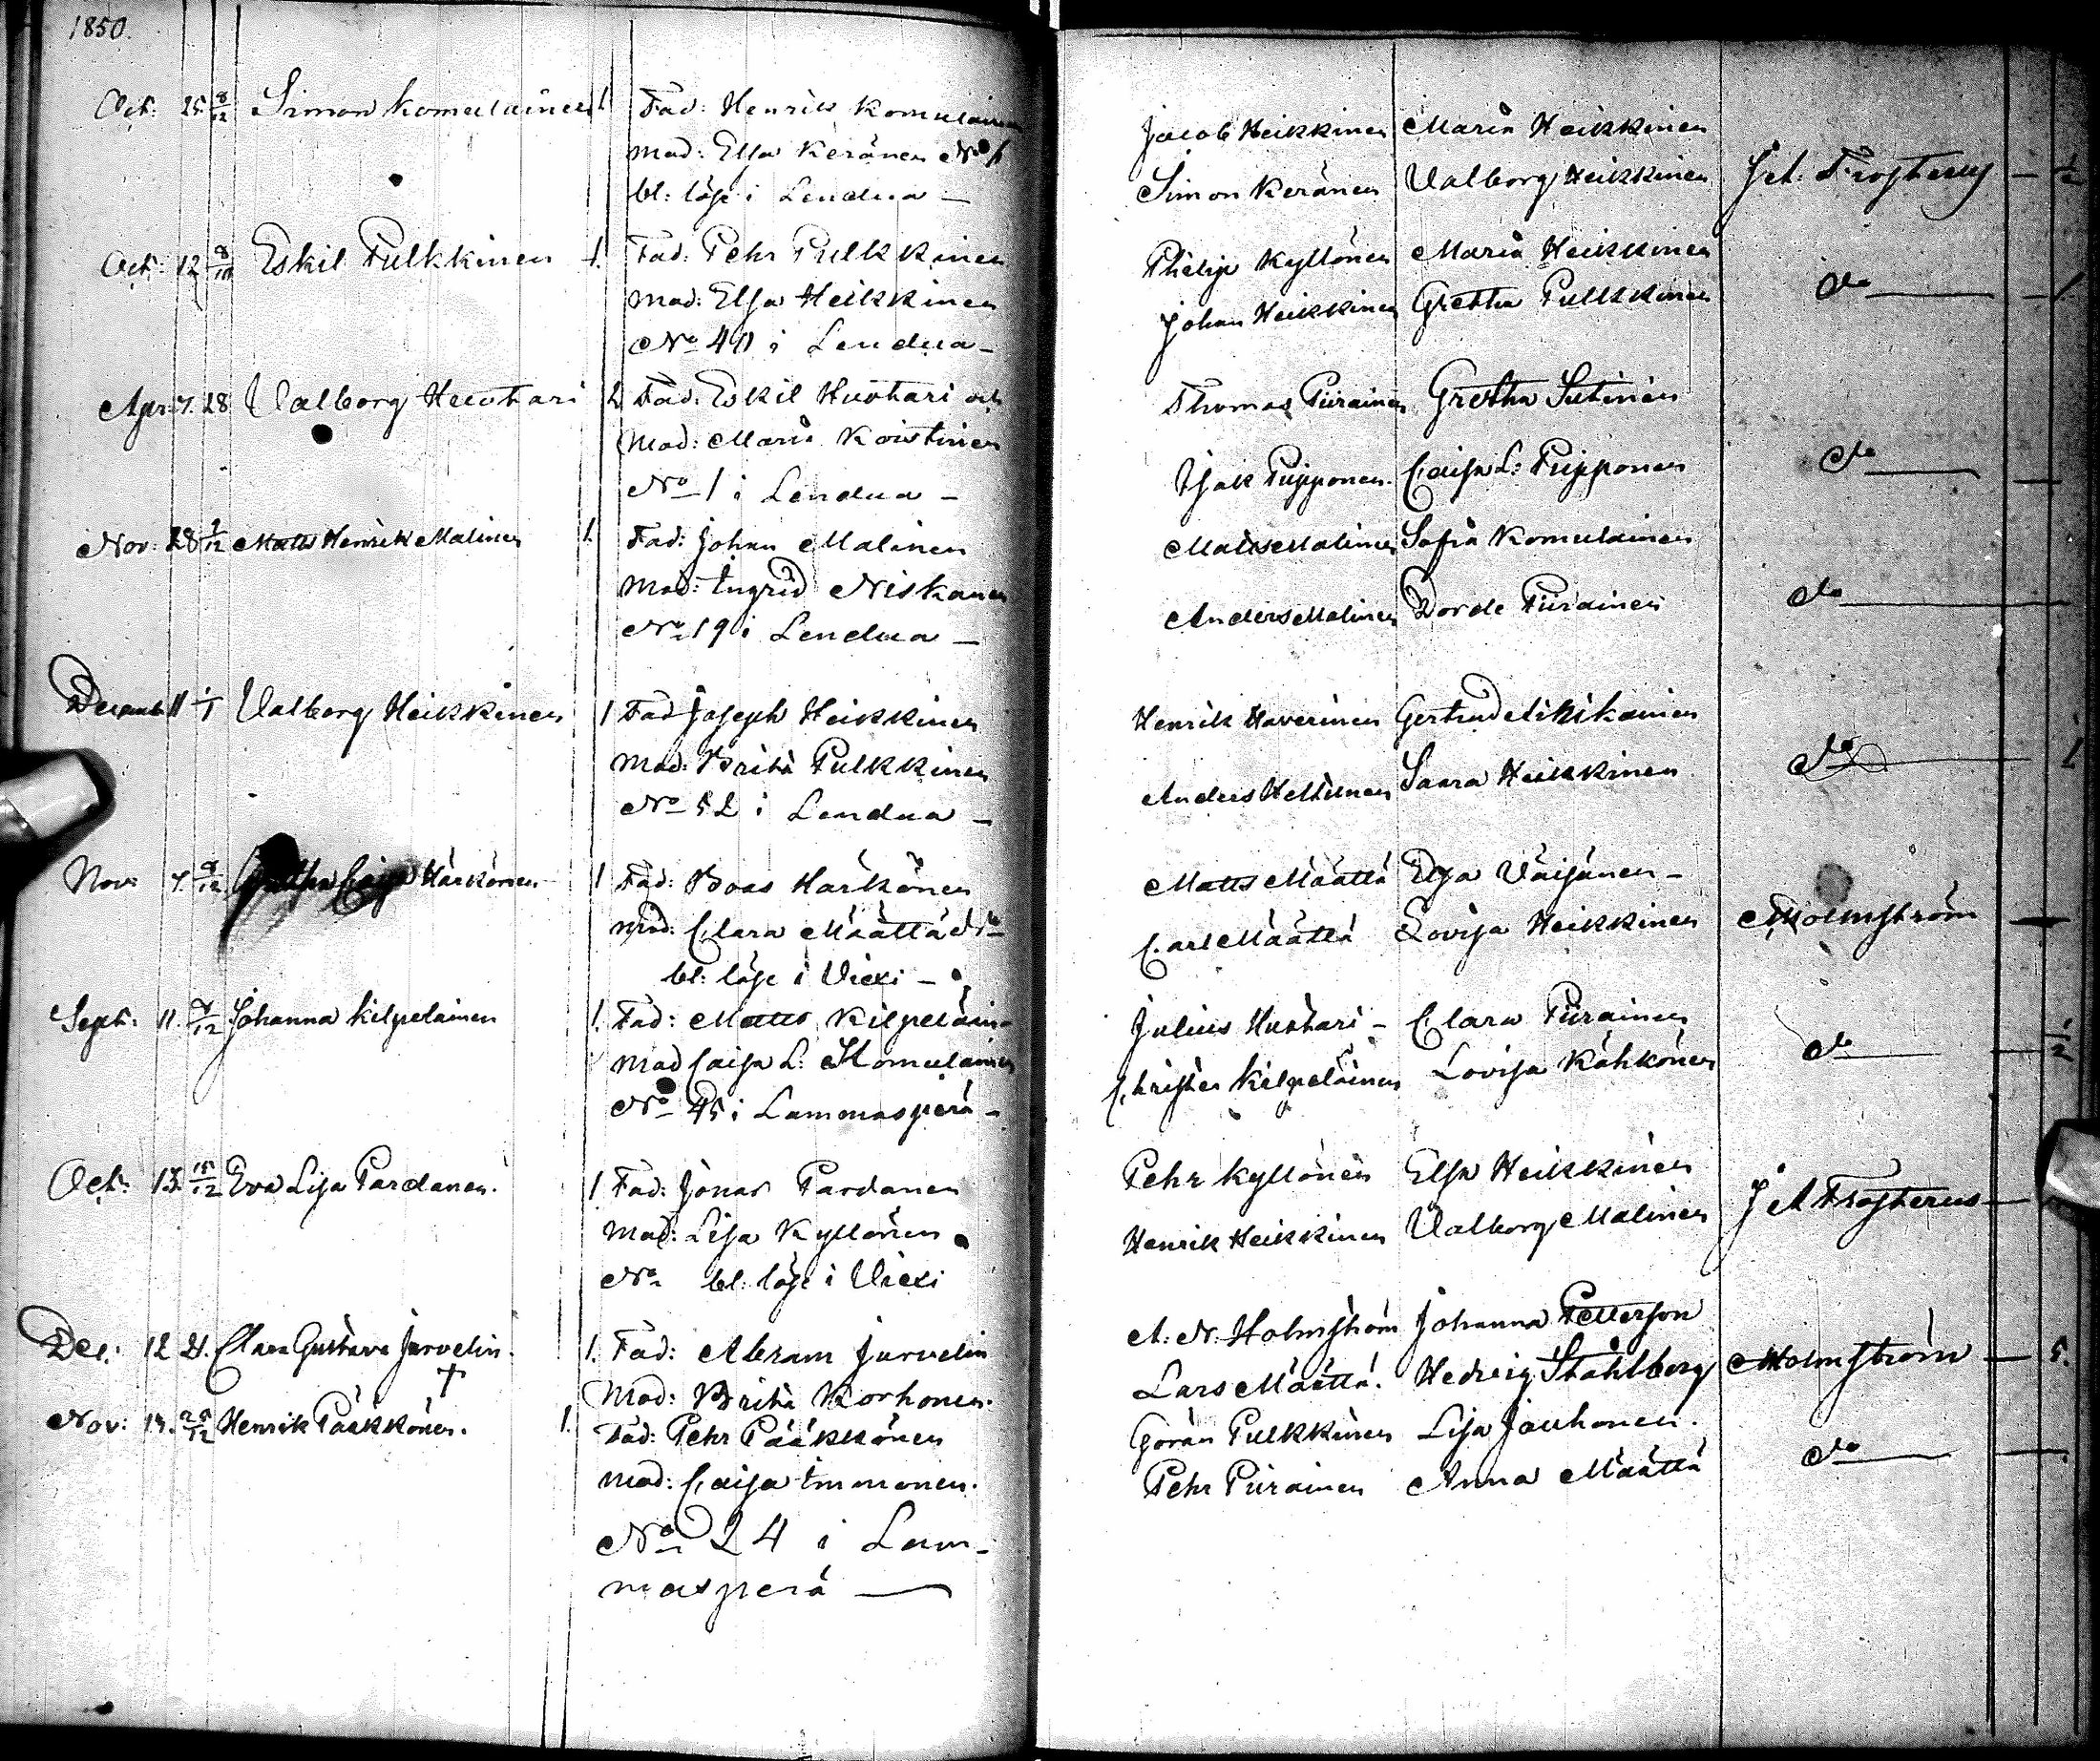 1850.
Oct: 25 8/12 Simon Komulainen 1 Fad: Henrik Komulainen
Mod: Elsa Keränen No
bl: löse i Lendua —
Jacob Heikkinen Maria Heikkinen
Simon Keränen Valborg Heikkinen
Oct: 12 Eskil Pulkkinen 1. Fad: Pehr Pulkkinen
Mod: Elsa Heikkinen
No 40 i Lendua —
Philip Kyllönen Maria Heikkinen
Johan Heikkinen Gretha Pulkkinen do
Apr: 7. 28 Valborg Huotari 2 Fad: Eskil Huotari och
Mod: Maria Koistinen
No 1 i Lendua —
Thomas Piirainen Gretha Sutinen
Isak Piipponen. Caisa L: Piipponen do
Nov: 28 1/12 Matts Henrik Malinen 1. Fad: Johan Malinen
Mod: Ingrid Niskanen
No 19 i Lendua —
Matts Malinen Sofia Komulainen
Anders Malinen Dorde Piirainen do
Decemb 11 1/1 Valborg Heikkinen 1 Fad Joseph Heikkinen
Mod: Brita Pulkkinen
No 52 i Lendua —
Henrik Haverinen Gertrud
Anders Saara Heikkinen do
Nov: 7. 9/12 Härkönen 1 Fad: Boas Härkönen
Mod: Clara Määttä No
bl: löse i Viexi —
Matts Määttä Elsa Väisänen —
Carl Määttä Lovisa Heikkinen Holmström
Sept: 11. Johanna Kilpeläinen 1. Fad: Matts Kilpeläin-
Mod Caisa L: Komulainen
No 45 i Lammasperä —
Julius Huotari — Clara Piirainen
Christer Kilpeläinen Lovisa Kähkönen do 1/2
Oct: 13. 15/12 Eva Lisa Pardanen. 1 Fad: Jonas Pardanen
Mod: Lisa Kyllönen
No bl: löse i Viexi
Pehr Kyllönen Elsa Heikkinen
Henrik Heikkinen Valborg Malinen J A Frosterus —
Dec: 12 21. Clara Gustava Jarvelin. 1. Fad: Abram Jarvelin
†
Mod: Brita Korhonen.
A: N: Holmström Johanna Petterson
Lars Määttä. Hedvig Ståhlberg Holmström — 5.
Nov: 25/12 Henrik Pääkkönen. 1. Fad: Pehr Pääkkönen
Mod: Caisa Immonen.
No 24 i Lam-
masperä —
Göran Pulkkinen Lisa Jauhonen.
Pehr Piirainen Anna Määttä do